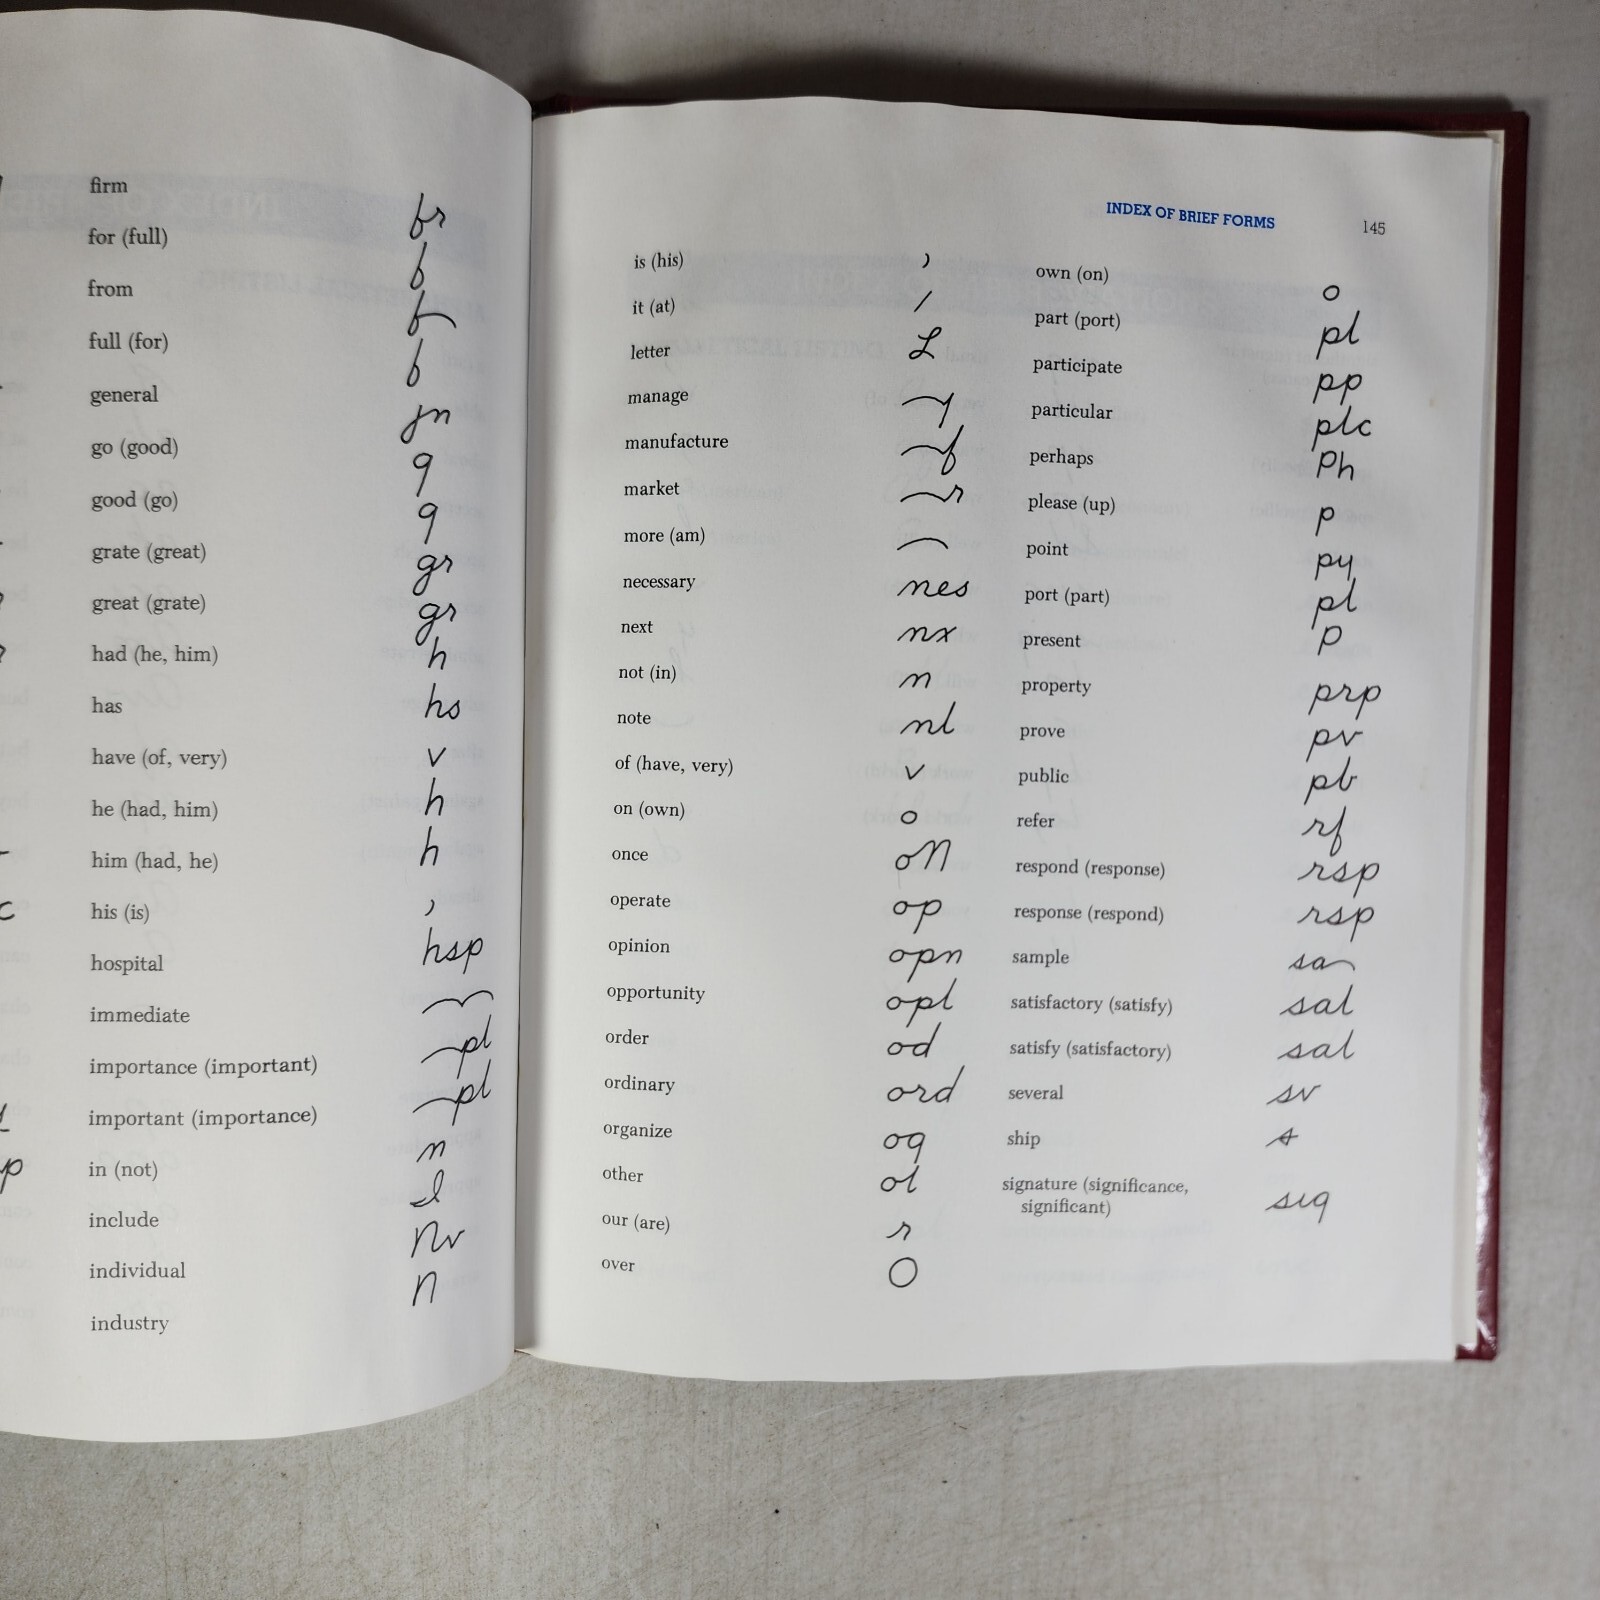 firm fr
for (full) f
from
full (for) f
general jn
go (good) g
good (go) g
grate (great) gr
great (grate) gr
had (he, him) h
has hs
have (of, very) v
he (had, him) h
him (had, he) h
his (is) ,
hospital hsp
immediate
importance (important) pl
important (importance) pl
in (not) n
include
individual nv
industry n
INDEX OF BRIEF FORMS 145
is (his) ,
it (at) /
letter L
manage
manufacture
market
more (am)
necessary nes
next nx
not (in) n
note nl
of (have, very) v
on (own) o
once on
operate op
opinion opn
opportunity opl
order od
ordinary ord
organize og
other ol
our (are) r
over O
own (on) o
part (port) pl
participate pp
particular plc
perhaps ph
please (up) p
point py
port (part) pl
present p
property prp
prove pv
public pb
refer rf
respond (response) rsp
response (respond) rsp
sample sa
satisfactory (satisfy) sal
satisfy (satisfactory) sal
several sv
ship
signature (significance,
significant) sig